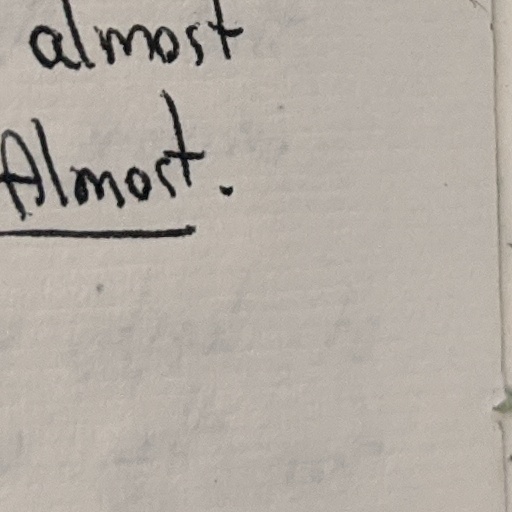 almost
Almost.